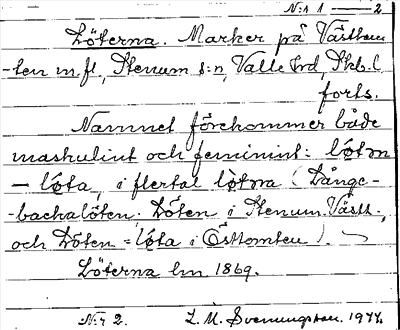 N:r 1 — 2
Löterna. Marker på Västtom
-ten m.fl, Stenum s:n, Valle hrd, Skb. l.
forts.
Namnet förekommer både
maskulint och feminint: løtn
— løta, i flertal løtna (Långe-
-backalöten. Löten i Stenum. Västt.,
och Löten = løta i Östtomten).
Löterna lm 1869.
N:r 2. L. M. Svenungsson. 1944.